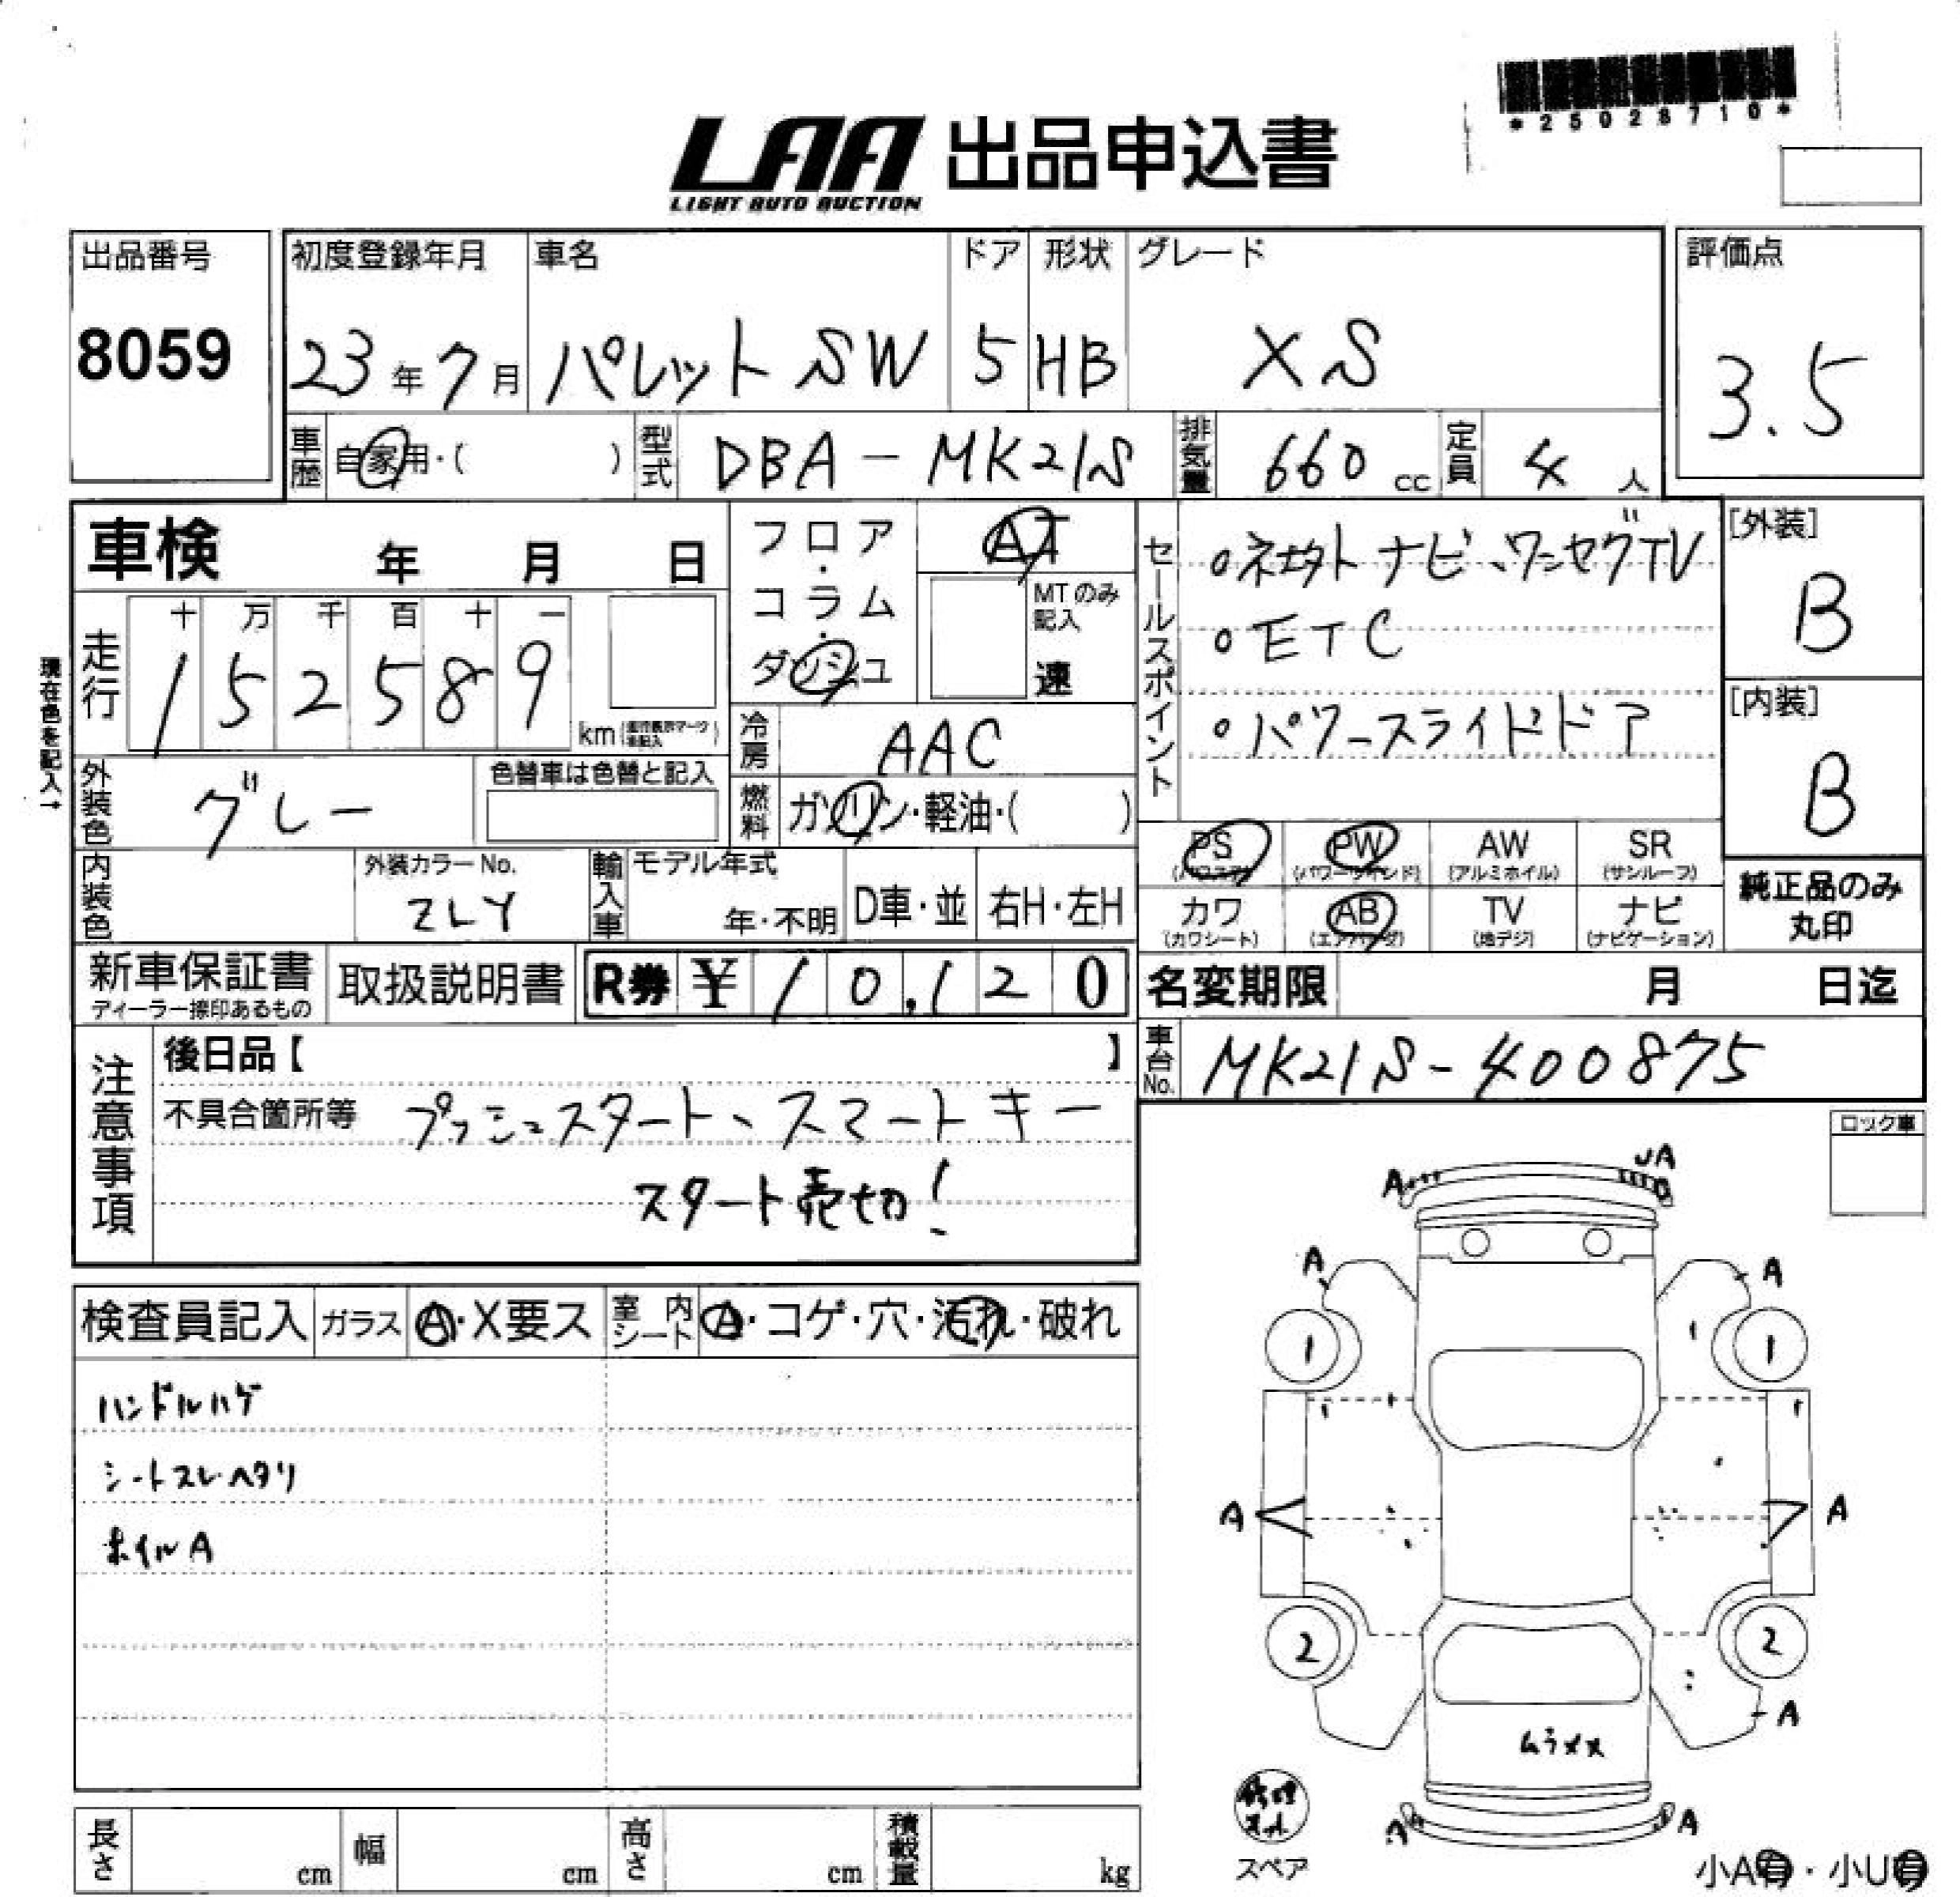 *25028710*
LAA 出品申込書
LIGHT AUTO AUCTION
出品番号 初度登録年月 車名 ドア 形状 グレード 評価点
8059 23年7月 パレットSW 5 HB XS 3.5
車歴 自家用・( ) 型式 DBA-MK21S 排気量 660cc 定員 4人
車検 年 月 日
フロア・コラム・ダッシュ
AT
MTのみ記入
速
セールスポイント
ナビ、ワンセグTV
ETC
パワースライドドア
[外装]
B
[内装]
B
現在色を記入→
走行 十 万 千 百 十 一
152589 km
冷房 AAC
外装色 グレー 色替車は色替と記入
燃料 ガソリン・軽油・( )
PS (パワステ) PW (パワーウインド) AW (アルミホイル) SR (サンルーフ)
カワ (カワシート) AB (エアバッグ) TV (地デジ) ナビ (ナビゲーション)
純正品のみ
丸印
内装色 外装カラーNo. ZLY 輸入車 モデル年式 年・不明 D車・並 右H・左H
新車保証書 取扱説明書 R券 ¥10,120 名変期限 月 日迄
ディーラー捺印あるもの
車台No. MK21S-400875
注意事項
後日品【 】
不具合箇所等 プッシュスタート、スマートキー
スタート売切!
ロック車
検査員記入 ガラス A・X要ス 室内シート A・コゲ・穴・汚れ・破れ
ハンドルハゲ
シートスレ・ヘタリ
ホイルA
A UA
A A
1 1
A A
2 2
A
ムラメス
A A
修理
スペア
長さ cm 幅 cm 高さ cm 積載量 kg
小A有・小U有